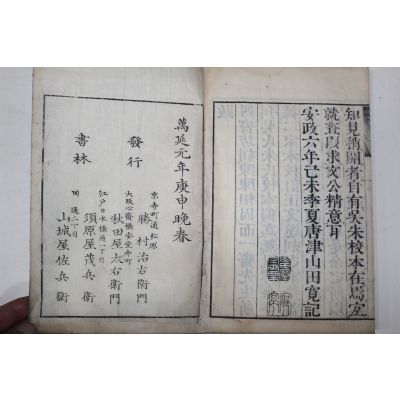 知見稍開者自有吳朱校本在焉宜
就查以求文公精意耳
安政六年己未季夏唐津山田寬記
萬延元年庚申晩春
發行
書林
京寺町通松原
勝村治右衛門
大坂心齋橋安堂寺町
秋田屋太右衛門
江戸日本橋通一丁目
須原屋茂兵衛
同 通二丁目
山城屋佐兵衛